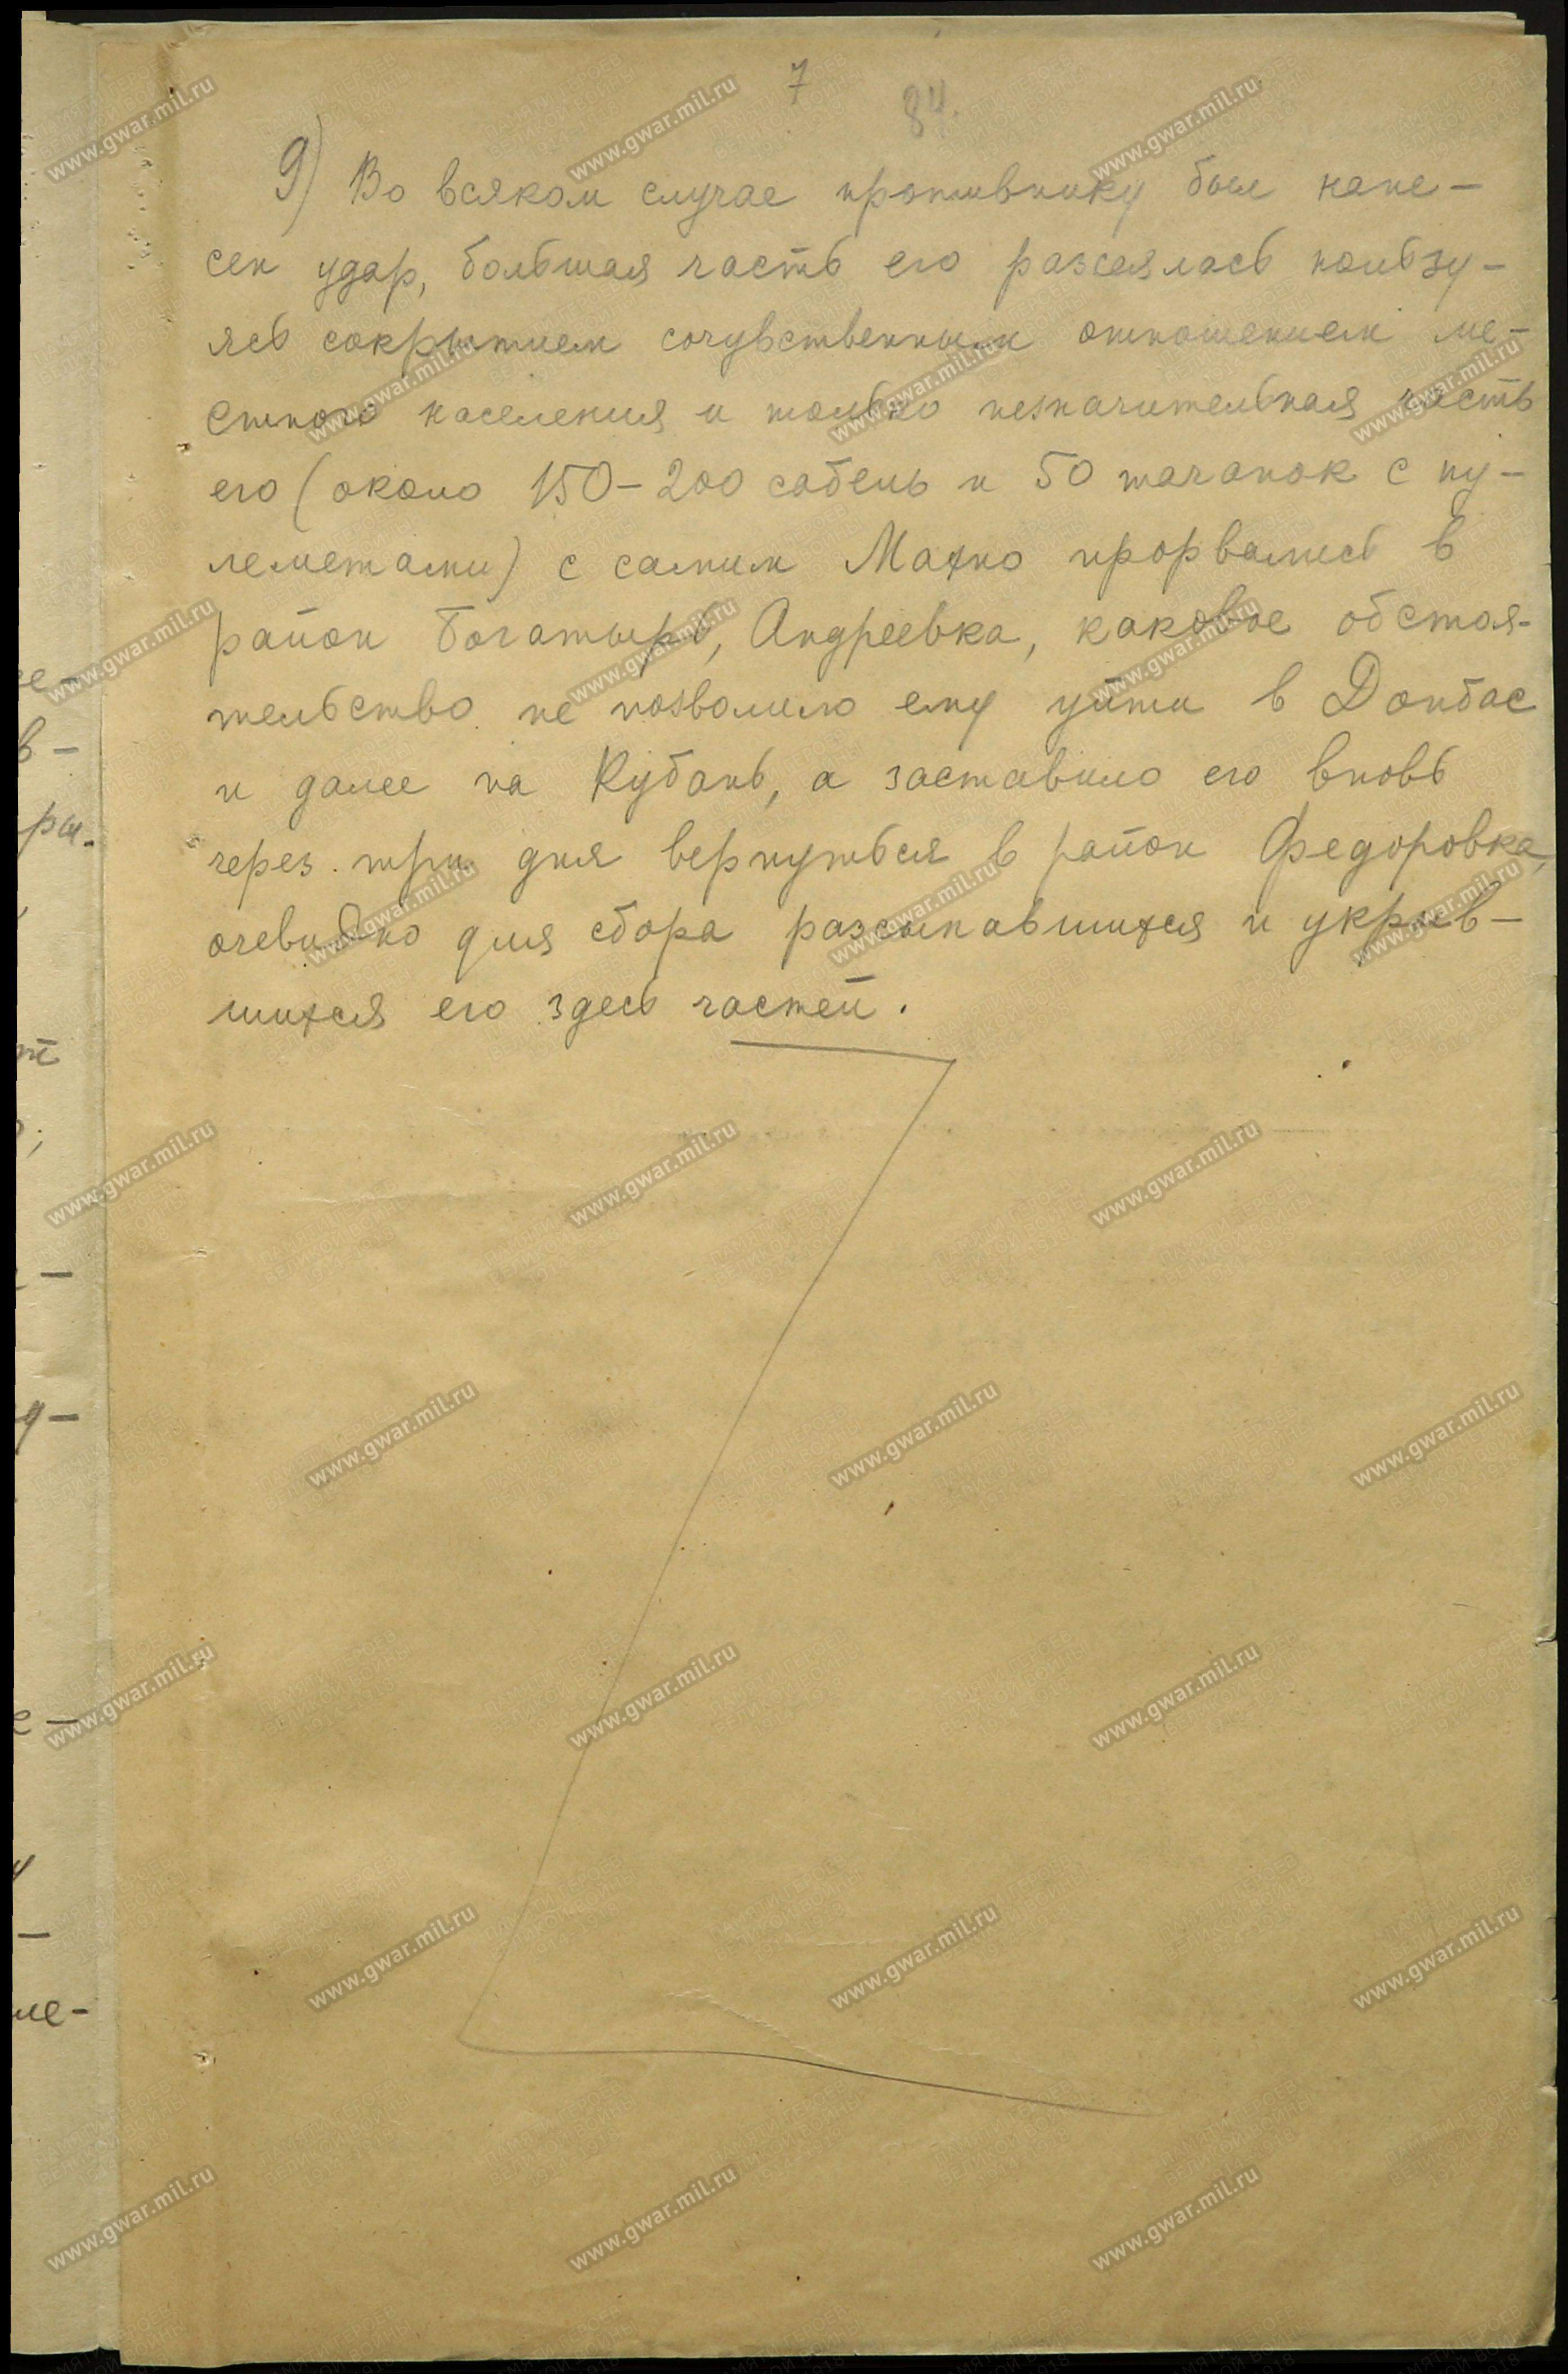 7
84.
9) Во всяком случае противнику был нане-
сен удар, большая часть его разсеялась пользу-
ясь сокрытием сочувственным отношением ме-
стного населения и только незначительная часть
его (около 150-200 сабель и 50 тачанок с пу-
леметами) с самим Махно прорвались в
район Богатырь, Андреевка, каковое обстоя-
тельство не позволило ему уйти в Донбас
и далее на Кубань, а заставило его вновь
через три дня вернуться в район Федоровка,
очевидно для сбора разсыпавшихся и укрыв-
шихся его здесь частей.